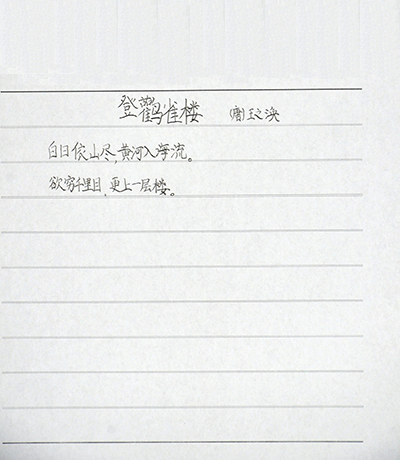 登鹳雀楼 (唐)王之涣
白日依山尽,黄河入海流。
欲穷千里目,更上一层楼。